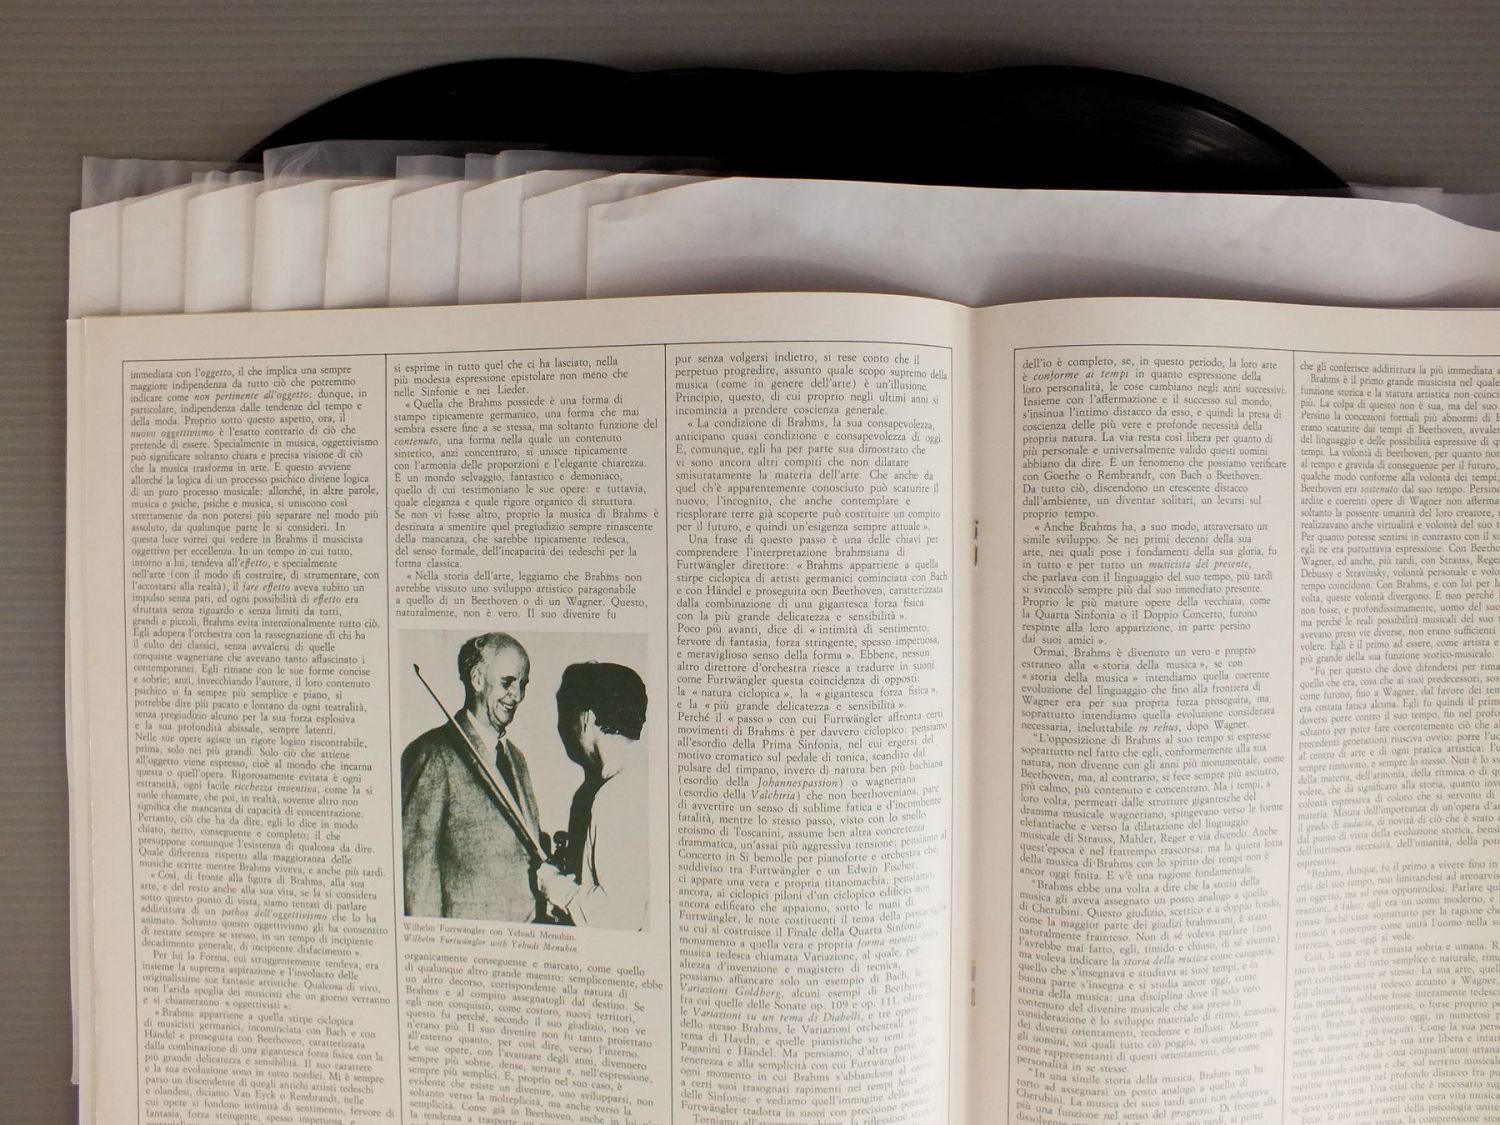 immediata con l'oggetto, il che implica una sempre
maggiore indipendenza da tutto ciò che potremmo
indicare come non pertinente all'oggetto: dunque, in
particolare, indipendenza dalle tendenze del tempo e
della moda. Proprio sotto questo aspetto, ora, il
nuovo oggettivismo è l'esatto contrario di ciò che
pretende di essere. Specialmente in musica, oggettivismo
può significare soltanto chiara e precisa visione di ciò
che la musica trasforma in arte. E questo avviene
allorché la logica di un processo psichico diviene logica
di un puro processo musicale: allorché, in altre parole,
musica e psiche, psiche e musica, si uniscono così
strettamente da non potersi più separare nel modo più
assoluto, da qualunque parte le si consideri. In
questa luce vorrei qui vedere in Brahms il musicista
oggettivo per eccellenza. In un tempo in cui tutto,
intorno a lui, tendeva all'effetto, e specialmente
nell'arte (con il modo di costruire, di strumentare, con
l'accostarsi alla realtà), il fare effetto aveva subìto un
impulso senza pari, ed ogni possibilità di effetto era
sfruttata senza riguardo e senza limiti da tutti,
grandi e piccoli, Brahms evita intenzionalmente tutto ciò.
Egli adopera l'orchestra con la rassegnazione di chi ha
il culto dei classici, senza avvalersi di quelle
conquiste wagneriane che avevano tanto affascinato i
contemporanei. Egli rimane con le sue forme concise
e sobrie; anzi, invecchiando l'autore, il loro contenuto
psichico si fa sempre più semplice e piano, si
potrebbe dire più pacato e lontano da ogni teatralità,
senza pregiudizio alcuno per la sua forza esplosiva
e la sua profondità abissale, sempre latenti.
Nelle sue opere agisce un rigore logico riscontrabile,
prima, solo nei più grandi. Solo ciò che attiene
all'oggetto viene espresso, cioè al mondo che incarna
questa o quell'opera. Rigorosamente evitata è ogni
estraneità, ogni facile ricchezza inventiva, come la si
suole chiamare, che poi, in realtà, sovente altro non
significa che mancanza di capacità di concentrazione.
Pertanto, ciò che ha da dire, egli lo dice in modo
chiaro, netto, conseguente e completo; il che
presuppone comunque l'esistenza di qualcosa da dire.
Quale differenza rispetto alla maggioranza delle
musiche scritte mentre Brahms viveva, e anche più tardi.
« Così, di fronte alla figura di Brahms, alla sua
arte, e del resto anche alla sua vita, se la si considera
sotto questo punto di vista, siamo tentati di parlare
addirittura di un pathos dell'oggettivismo che lo ha
animato. Soltanto questo oggettivismo gli ha consentito
di restare sempre se stesso, in un tempo di incipiente
decadimento generale, di incipiente disfacimento ».
Per lui la Forma, cui struggentemente tendeva, era
insieme la suprema aspirazione e l'involucro delle
originalissime sue fantasie artistiche. Qualcosa di vivo,
non l'arida spoglia dei musicisti che un giorno verranno
e si chiameranno « oggettivisti »:
« Brahms appartiene a quella stirpe ciclopica
di musicisti germanici, incominciata con Bach e con
Händel e proseguita con Beethoven, caratterizzata
dalla combinazione di una gigantesca forza fisica con la
più grande delicatezza e sensibilità. Il suo carattere
e la sua evoluzione sono in tutto nordici. Mi è sempre
parso un discendente di quegli antichi artisti tedeschi
e olandesi, diciamo Van Eyck o Rembrandt, nelle
cui opere si fondono intimità di sentimento, fervore di
fantasia, forza stringente, spesso impetuosa, e
si esprime in tutto quel che ci ha lasciato, nella
più modesta espressione epistolare non meno che
nelle Sinfonie e nei Lieder.
« Quella che Brahms possiede è una forma di
stampo tipicamente germanico, una forma che mai
sembra essere fine a se stessa, ma soltanto funzione del
contenuto, una forma nella quale un contenuto
sintetico, anzi concentrato, si unisce tipicamente
con l'armonia delle proporzioni e l'elegante chiarezza.
È un mondo selvaggio, fantastico e demoniaco,
quello di cui testimoniano le sue opere: e tuttavia,
quale eleganza e quale rigore organico di struttura.
Se non vi fosse altro, proprio la musica di Brahms è
destinata a smentire quel pregiudizio sempre rinascente
della mancanza, che sarebbe tipicamente tedesca,
del senso formale, dell'incapacità dei tedeschi per la
forma classica.
« Nella storia dell'arte, leggiamo che Brahms non
avrebbe vissuto uno sviluppo artistico paragonabile
a quello di un Beethoven o di un Wagner. Questo,
naturalmente, non è vero. Il suo divenire fu
Wilhelm Furtwängler con Yehudi Menuhin.
Wilhelm Furtwängler with Yehudi Menuhin.
organicamente conseguente e marcato, come quello
di qualunque altro grande maestro; semplicemente, ebbe
un altro decorso, corrispondente alla natura di
Brahms e al compito assegnatogli dal destino. Se
egli non conquistò, come costoro, nuovi territori,
questo fu perché, secondo il suo giudizio, non ve
n'erano più. Il suo divenire non fu tanto proiettato
all'esterno quanto, per così dire, verso l'interno.
Le sue opere, con l'avanzare degli anni, divennero
sempre più sobrie, dense, serrate e, nell'espressione,
sempre più semplici. E, proprio nel suo caso, è
evidente che esiste un divenire, uno svilupparsi, non
soltanto verso la molteplicità, ma anche verso la
semplicità. Come già in Beethoven, anche in lui
la tendenza a trasporre un
pur senza volgersi indietro, si rese conto che il
perpetuo progredire, assunto quale scopo supremo della
musica (come in genere dell'arte) è un'illusione.
Principio, questo, di cui proprio negli ultimi anni si
incomincia a prendere coscienza generale.
« La condizione di Brahms, la sua consapevolezza,
anticipano quasi condizione e consapevolezza di oggi.
E, comunque, egli ha per parte sua dimostrato che
vi sono ancora altri compiti che non dilatare
smisuratamente la materia dell'arte. Che anche da
quel ch'è apparentemente conosciuto può scaturire il
nuovo, l'incognito, che anche contemplare e
riesplorare terre già scoperte può costituire un compito
per il futuro, e quindi un'esigenza sempre attuale ».
Una frase di questo passo è una delle chiavi per
comprendere l'interpretazione brahmsiana di
Furtwängler direttore: « Brahms appartiene a quella
stirpe ciclopica di artisti germanici cominciata con Bach
e con Händel e proseguita ocn Beethoven, caratterizzata
dalla combinazione di una gigantesca forza fisica
con la più grande delicatezza e sensibilità ».
Poco più avanti, dice di « intimità di sentimento,
fervore di fantasia, forza stringente, spesso impetuosa,
e meraviglioso senso della forma ». Ebbene, nessun
altro direttore d'orchestra riesce a tradurre in suoni
come Furtwängler questa coincidenza di opposti:
la « natura ciclopica », la « gigantesca forza fisica »,
e la « più grande delicatezza e sensibilità ».
Perché il « passo » con cui Furtwängler affronta certi
movimenti di Brahms è per davvero ciclopico: pensiamo
all'esordio della Prima Sinfonia, nel cui ergersi del
motivo cromatico sul pedale di tonica, scandito dal
pulsare del timpano, invero di natura ben più bachiana
(esordio della Johannespassion) o wagneriana
(esordio della Valchiria) che non beethoveniana, pare
di avvertire un senso di sublime fatica e d'incombente
fatalità, mentre lo stesso passo, visto con lo snello
eroismo di Toscanini, assume ben altra concretezza
drammatica, un'assai più aggressiva tensione; pensiamo al
Concerto in Si bemolle per pianoforte e orchestra che,
suddiviso tra Furtwängler e un Edwin Fischer,
ci appare una vera e propria titanomachia; pensiamo,
ancora, ai ciclopici piloni d'un ciclopico edificio non
ancora edificato che appaiono, sotto le mani di
Furtwängler, le note costituenti il tema della passacaglia
su cui si costruisce il Finale della Quarta Sinfonia,
monumento a quella vera e propria forma mentis della
musica tedesca chiamata Variazione, al quale, per
altezza d'invenzione e magistero di tecnica,
possiamo affiancare solo un esempio di Bach, le
Variazioni Goldberg, alcuni esempi di Beethoven,
fra cui quelle delle Sonate op. 109 e op. 111, oltre
le Variazioni su un tema di Diabelli, e tre opere
dello stesso Brahms, le Variazioni orchestrali su
tema di Haydn, e quelle pianistiche su temi di
Paganini e Händel. Ma pensiamo, d'altra parte,
tenerezza e alla semplicità con cui Furtwängler
ogni momento in cui Brahms s'abbandona al
a certi suoi trasognati rapimenti nei tempi lenti
delle Sinfonie: e vediamo quell'immagine dello
Furtwängler tradotta in suoni con precisione
Torniamo all'argomento
dell'io è completo, se, in questo periodo, la loro arte
è conforme ai tempi in quanto espressione della
loro personalità, le cose cambiano negli anni successivi.
Insieme con l'affermazione e il successo sul mondo,
s'insinua l'intimo distacco da esso, e quindi la presa di
coscienza delle più vere e profonde necessità della
propria natura. La via resta così libera per quanto di
più personale e universalmente valido questi uomini
abbiano da dire. È un fenomeno che possiamo verificare
con Goethe o Rembrandt, con Bach o Beethoven.
Da tutto ciò, discendono un crescente distacco
dall'ambiente, un diventar solitari, un levarsi sul
proprio tempo.
« Anche Brahms ha, a suo modo, attraversato un
simile sviluppo. Se nei primi decenni della sua
arte, nei quali pose i fondamenti della sua gloria, fu
in tutto e per tutto un musicista del presente,
che parlava con il linguaggio del suo tempo, più tardi
si svincolò sempre più dal suo immediato presente.
Proprio le più mature opere della vecchiaia, come
la Quarta Sinfonia o il Doppio Concerto, furono
respinte alla loro apparizione, in parte persino
dai suoi amici ».
Ormai, Brahms è divenuto un vero e proprio
estraneo alla « storia della musica », se con
« storia della musica » intendiamo quella coerente
evoluzione del linguaggio che fino alla frontiera di
Wagner era per sua propria forza proseguita, ma
soprattutto intendiamo quella evoluzione considerata
necessaria, ineluttabile in rebus, dopo Wagner.
"L'opposizione di Brahms al suo tempo si espresse
soprattutto nel fatto che egli, conformemente alla sua
natura, non divenne con gli anni più monumentale, come
Beethoven, ma, al contrario, si fece sempre più asciutto,
più calmo, più contenuto e concentrato. Ma i tempi, a
loro volta, permeati dalle strutture gigantesche del
dramma musicale wagneriano, spingevano verso le forme
elefantiache e verso la dilatazione del linguaggio
musicale di Strauss, Mahler, Reger e via dicendo. Anche
quest'epoca è nel frattempo trascorsa; ma la quieta lotta
della musica di Brahms con lo spirito dei tempi non è
ancor oggi finita. E v'è una ragione fondamentale.
"Brahms ebbe una volta a dire che la storia della
musica gli aveva assegnato un posto analogo a quello
di Cherubini. Questo giudizio, scettico e a doppio fondo,
come la maggior parte dei giudizi brahmsiani, è stato
naturalmente frainteso. Non di sé voleva parlare (non
l'avrebbe mai fatto, egli, timido e chiuso, di sé vivente)
ma voleva indicare la storia della musica come categoria;
quello che s'insegnava e studiava ai suoi tempi, e in
buona parte s'insegna e si studia ancor oggi, come
storia della musica: una disciplina dove il solo vero
contenuto del divenire musicale sia preso in
considerazione è lo sviluppo materiale di ritmo, armonia,
dei diversi orientamenti, tendenze e influssi. Mentre
gli uomini, sui quali tutto ciò poggia, vi compaiono più
come rappresentanti di questi orientamenti, che come
personalità in se stesse.
"In una simile storia della musica, Brahms non ha
torto ad assegnarsi un posto analogo a quello di
Cherubini. La musica dei suoi tardi anni non adempiva
più una funzione nel senso del progresso. Di fronte alla
che gli conferisce addirittura la più immediata
Brahms è il primo grande musicista nel quale
funzione storica e la statura artistica non
più. La colpa di questo non è sua, ma del suo
Persino la concezioni formali più abnormi di
erano scaturite dai tempi di Beethoven,
del linguaggio e delle possibilità espressive di
tempi. La volontà di Beethoven, per quanto
al tempo e gravida di conseguenze per il futuro,
qualche modo conforme alla volontà dei tempi;
Beethoven era sostenuto dal suo tempo. Persino
ardite e coerenti opere di Wagner non
soltanto la possente umanità del loro creatore,
realizzavano anche virtualità e volontà del suo
Per quanto potesse sentirsi in contrasto con il
egli ne era purtuttavia espressione. Con
Wagner, ed anche, più tardi, con Strauss,
Debussy e Stravinsky, volontà personale e
tempo coincidono. Con Brahms, e con lui per la
volta, queste volontà divergono. E non perché
non fosse, e profondissimamente, uomo del suo
ma perché le reali possibilità musicali del suo
avevano preso vie diverse, non erano sufficienti
volere. Egli è il primo ad essere, come artista e
più grande della sua funzione storico-musicale.
"Fu per questo che dové difendersi per
quello che era, cosa che ai suoi predecessori,
come furono, fino a Wagner, dal favore dei
era costata fatica alcuna. Egli fu quindi il primo
doversi porre contro il suo tempo, fin nel
soltanto per poter fare coerentemente ciò che
precedenti generazioni riusciva ovvio: porre
al centro di arte e di ogni pratica artistica:
sempre rinnovato, e sempre lo stesso. Non è lo
della materia, dell'armonia, della ritmica o di
volere, che dà significato alla storia, quanto
volontà espressiva di coloro che si servono di
materia. Misura dell'importanza di un'opera
il grado di audacia, di novità di ciò che è stato
dal punto di vista della evoluzione storica,
dell'intrinseca necessità, dell'umanità, della
espressiva.
"Brahms, dunque, fu il primo a vivere fino in
crisi del suo tempo, non limitandosi ad